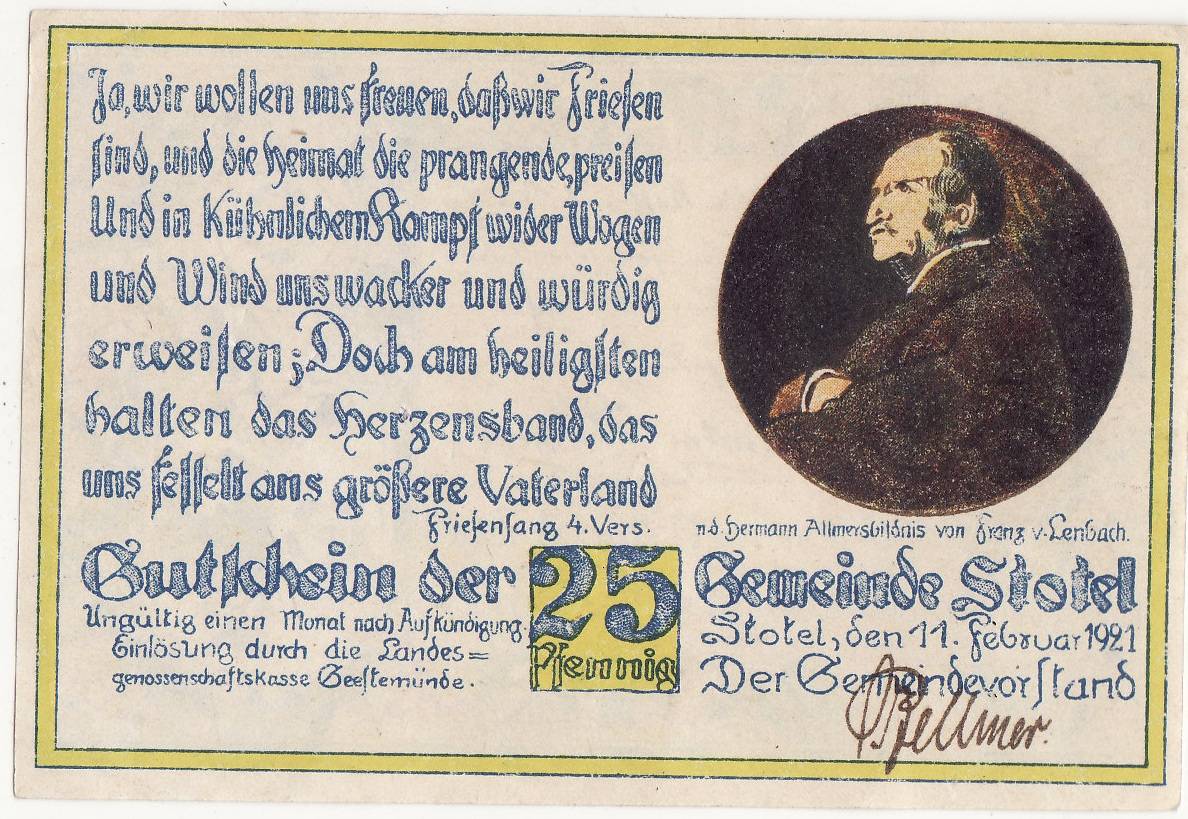 Ja, wir wollen uns freuen, daß wir Friesen
sind, und die Heimat die prangende, preisen
Und in Kühnlichem Kampf wider Wogen
und Wind uns wacker und würdig
erweisen; Doch am heiligsten
halten das Herzensband, das
uns fesselt ans größere Vaterland
Friesensang 4. Vers.
n. d. Hermann Allmersbildnis von Franz v. Lenbach.
Gutschein der
25
Pfennig
Gemeinde Stotel
Ungültig einen Monat nach Aufkündigung.
Einlösung durch die Landes=
genossenschaftskasse Geestemünde.
Stotel, den 11. Februar 1921
Der Gemeindevorstand